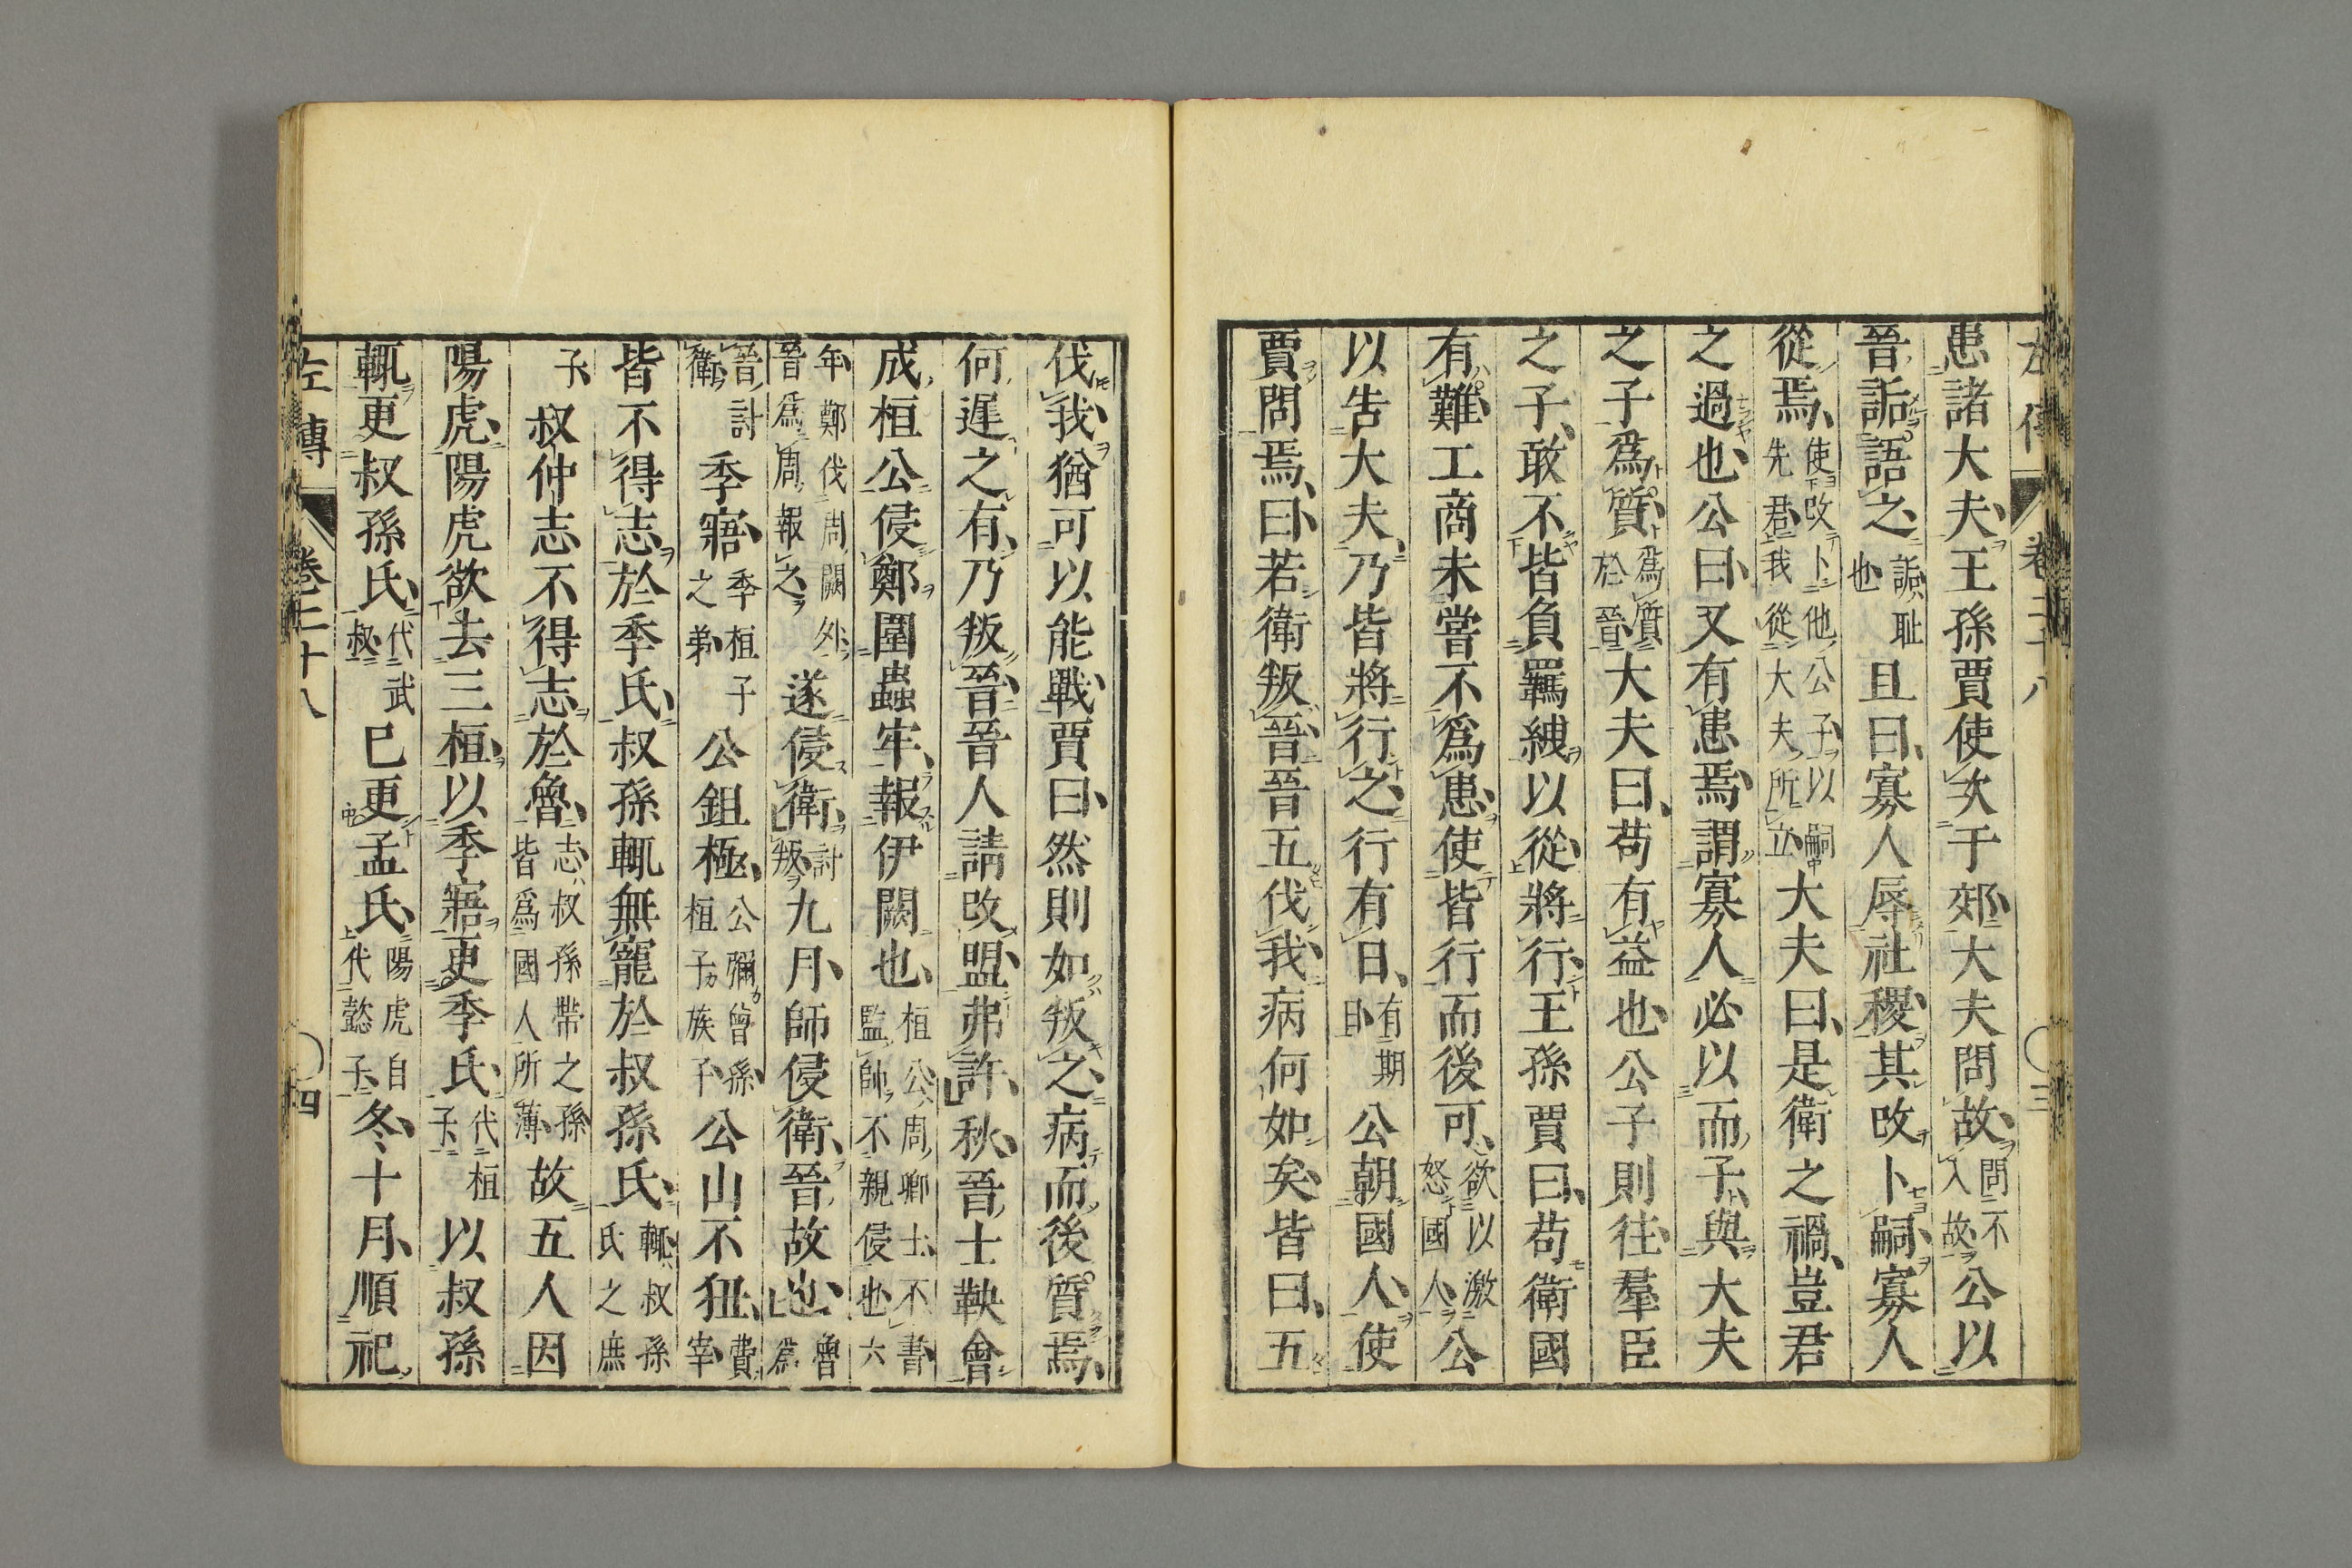 左傳 卷二十八 三
患諸大夫王孫賈使次于郊大夫問故問不入故公以
晉詬語之詬耻也且曰寡人辱社稷其改卜嗣寡人
從焉使改卜他公子以嗣先君我從大夫所立大夫曰是衛之禍豈君
之過也公曰又有患焉謂寡人必以而子與大夫
之子爲質爲質於晉大夫曰苟有益也公子則往羣臣
之子敢不皆負羈絏以從將行王孫賈曰苟衛國
有難工商未嘗不爲患使皆行而後可欲以激怒國人公
以告大夫乃皆將行之行有日有期日公朝國人使
賈問焉曰若衛叛晉晉五伐我病何如矣皆曰五
伐我猶可以能戰賈曰然則如叛之病而後質焉
何遲之有乃叛晉晉人請改盟弗許秋晉士鞅會
成桓公侵鄭圍蟲牢報伊闕也桓公周卿士不書監帥不親侵也六
年鄭伐周闕外晉爲周報之遂侵衛討叛九月師侵衛晉故也魯爲
晉討衛季寤季桓子之弟公鉏極公彌曾孫桓子族子公山不狃費宰
皆不得志於季氏叔孫輒無寵於叔孫氏輒叔孫氏之庶
子叔仲志不得志於魯志叔孫帶之孫皆爲國人所薄故五人因
陽虎陽虎欲去三桓以季寤更季氏代桓子以叔孫
輒更叔孫氏代武叔已更孟氏陽虎自代懿子冬十月順祀
左傳 卷二十八 四